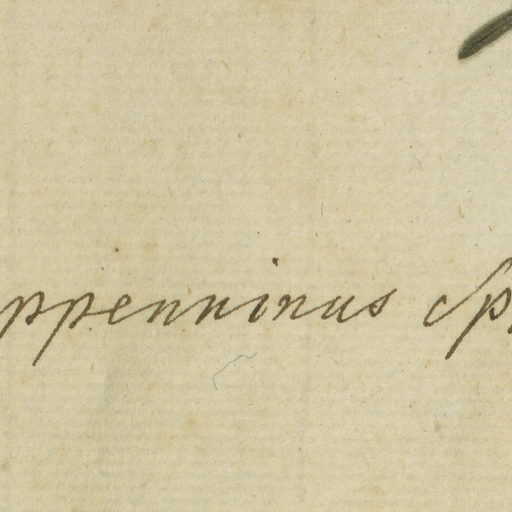 ppenninus Sp